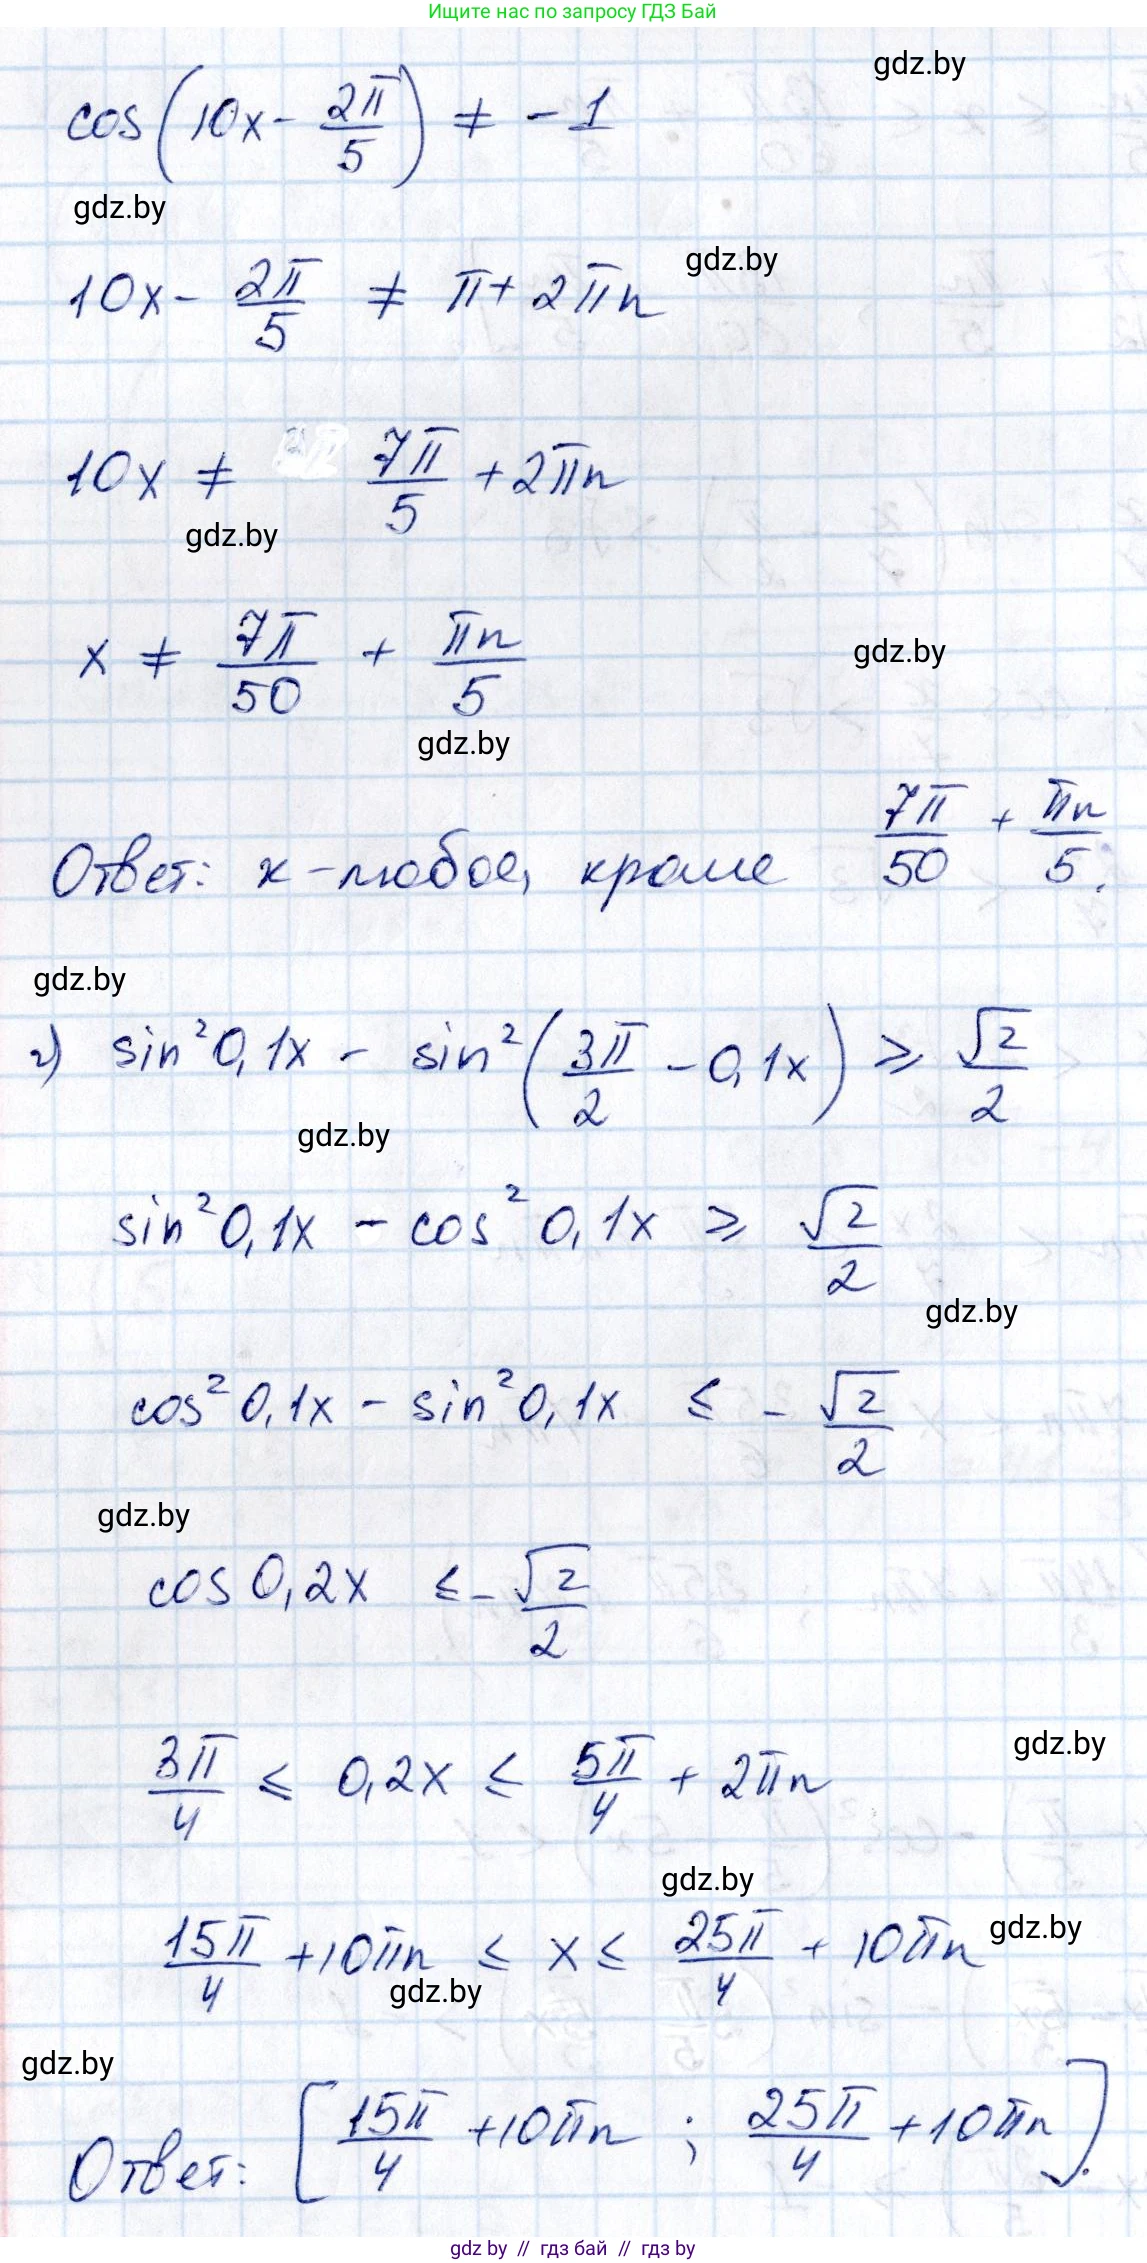 Ищите нас по запросу ГДЗ Бай
gdz.by
cos(10x - 2π/5) ≠ -1
gdz.by
gdz.by
10x - 2π/5 ≠ π + 2πn
10x ≠ 7π/5 + 2πn
gdz.by
x ≠ 7π/50 + πn/5
gdz.by
gdz.by
Ответ: x - любое, кроме 7π/50 + πn/5.
gdz.by
г) sin²0,1x - sin²(3π/2 - 0,1x) ⩾ √2/2
gdz.by
sin²0,1x - cos²0,1x ⩾ √2/2
gdz.by
cos²0,1x - sin²0,1x ≤ -√2/2
gdz.by
cos0,2x ≤ -√2/2
gdz.by
3π/4 ≤ 0,2x ≤ 5π/4 + 2πn
gdz.by
gdz.by
15π/4 + 10πn ≤ x ≤ 25π/4 + 10πn
gdz.by
gdz.by
Ответ: [15π/4 + 10πn ; 25π/4 + 10πn].
gdz.by // гдз бай // гдз by